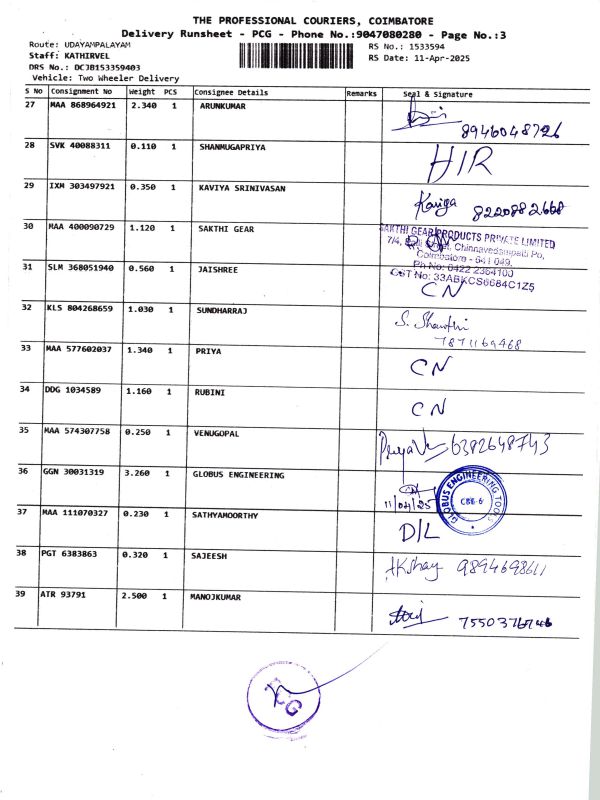 THE PROFESSIONAL COURIERS, COIMBATORE
Delivery Runsheet - PCG - Phone No.:9047080280 - Page No.:3
Route: UDAYAMPALAYAM
RS No.: 1533594
Staff: KATHIRVEL
RS Date: 11-Apr-2025
DRS No.: DCJB153359403
Vehicle: Two Wheeler Delivery
S No Consignment No Weight PCS Consignee Details Remarks Seal & Signature
27 MAA 868964921 2.340 1 ARUNKUMAR
8946048726
28 SVK 40088311 0.110 1 SHANMUGAPRIYA H/R
29 IXM 303497921 0.350 1 KAVIYA SRINIVASAN Kaviya 8220882668
30 MAA 400090729 1.120 1 SAKTHI GEAR
SAKTHI GEAR PRODUCTS PRIVATE LIMITED
7/4, Chinnavedampatti Po,
Coimbatore - 641 049.
Ph No: 0422 2364100
GST No: 33ABKCS6684C1Z5
31 SLM 368051940 0.560 1 JAISHREE CN
32 KLS 804268659 1.030 1 SUNDHARRAJ S. Shanthi
7871169468
33 MAA 577602037 1.340 1 PRIYA CN
34 DDG 1034589 1.160 1 RUBINI CN
35 MAA 574307758 0.250 1 VENUGOPAL 6382648743
36 GGN 30031319 3.260 1 GLOBUS ENGINEERING
11/04/25
GLOBUS ENGINEERING TOOLS
CBE-6
37 MAA 111070327 0.230 1 SATHYAMOORTHY D/L
38 PGT 6383863 0.320 1 SAJEESH Akshay 9894698611
39 ATR 93791 2.500 1 MANOJKUMAR
PCG